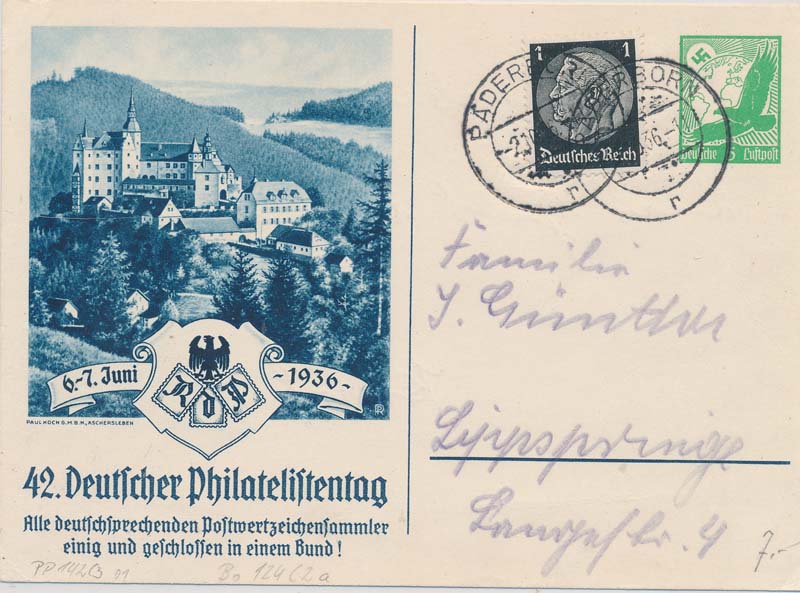 6.-7. Juni
-1936-
R d P
PAUL KOCH G.M.B.H., ASCHERSLEBEN
42. Deutscher Philatelistentag
Alle deutschsprechenden Postwertzeichensammler
einig und geschlossen in einem Bund!
PP 142 C3
Bo 124 C2a
1 1
Deutsches Reich
PADERBORN
BORN
r
r
Deutsche 5 Luftpost
Familie
J. Günther
Lippspringe
Langestr. 4
7.-